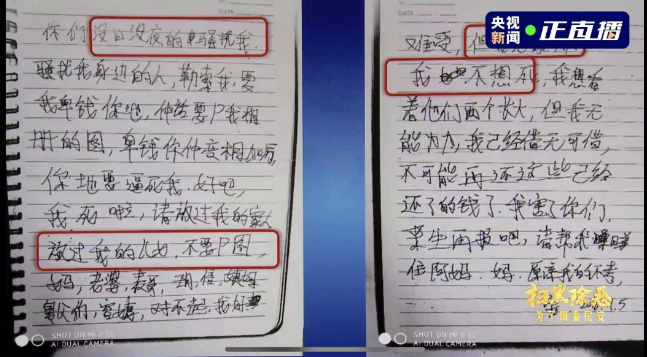 央视新闻 正直播
你们没日没夜的骚扰我,
骚扰我身边的人,勒索我,要
我卑钱你地,仲话要P我相
册的图,卑钱你仲变相加
你地要逼死我.好吧,
我死啦,请放过我的家人
放过我的 不要P图,
妈,老婆,
舅父们, 对不起,我好
SHOT ON MI
AI DUAL CAMERA
又难受,但
我 不想死,我想看
着他们两个长大,但我无
能为力,我已经借无可借,
不可能再还这些已经
还了的钱了.我害了你们,
来生再报吧,请帮我
住阿妈.妈,原谅我的不孝,
SHOT ON MI
AI DUAL CAMERA
扫黑除恶
为了国泰民安